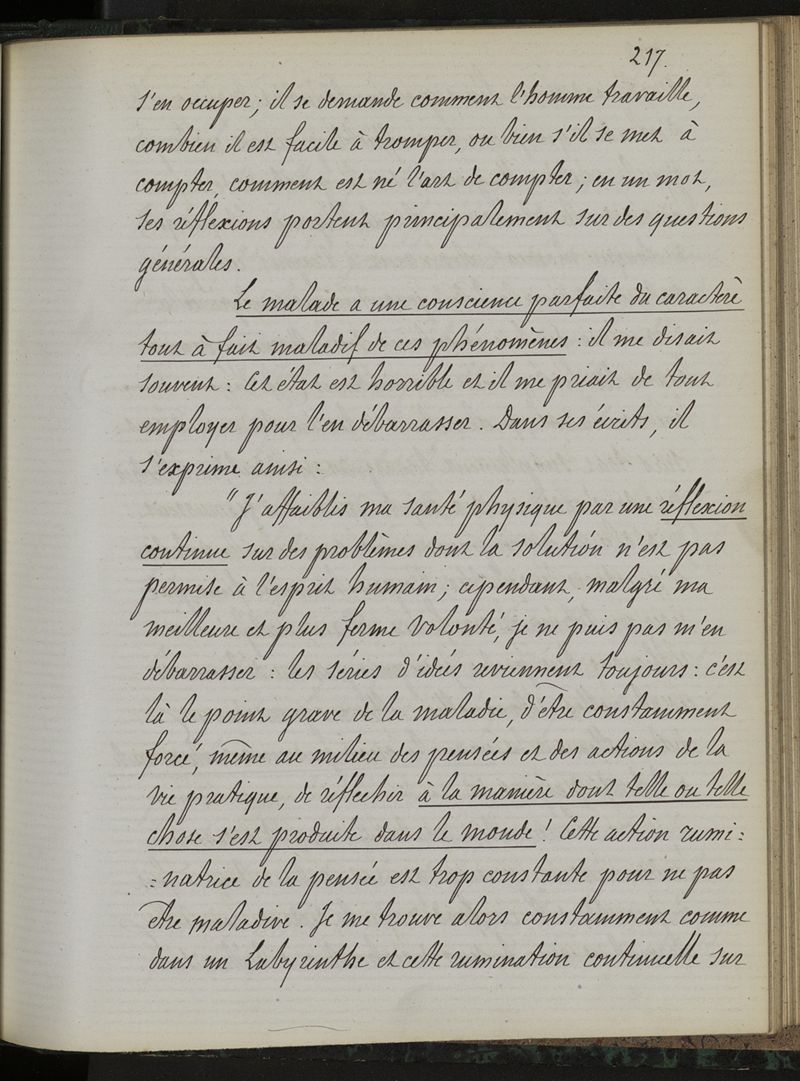 217.
s'en occuper; il se demande comment l'homme travaille,
combien il est facile à tromper, ou bien s'il se met à
compter, comment est né l'art de compter; en un mot,
ses réflexions portent principalement sur des questions
générales.
Le malade a une conscience parfaite du caractère
tout à fait maladif de ces phénomènes : il me disait
souvent : Cet état est horrible et il me priait de tout
employer pour l'en débarrasser. Dans ses écrits, il
s'exprime ainsi :
"J'affaiblis ma santé physique par une réflexion
continue sur des problèmes dont la solution n'est pas
permise à l'esprit humain; cependant, malgré ma
meilleure et plus ferme volonté, je ne puis pas m'en
débarrasser : les séries d'idées reviennent toujours : c'est
là le point grave de la maladie, d'être constamment
forcé, même au milieu des pensées et des actions de la
vie pratique, de réfléchir à la manière dont telle ou telle
chose s'est produite dans le monde! Cette action rumi=
=natrice de la pensée est trop constante pour ne pas
être maladive. Je me trouve alors constamment comme
dans un Labyrinthe et cette rumination continuelle sur